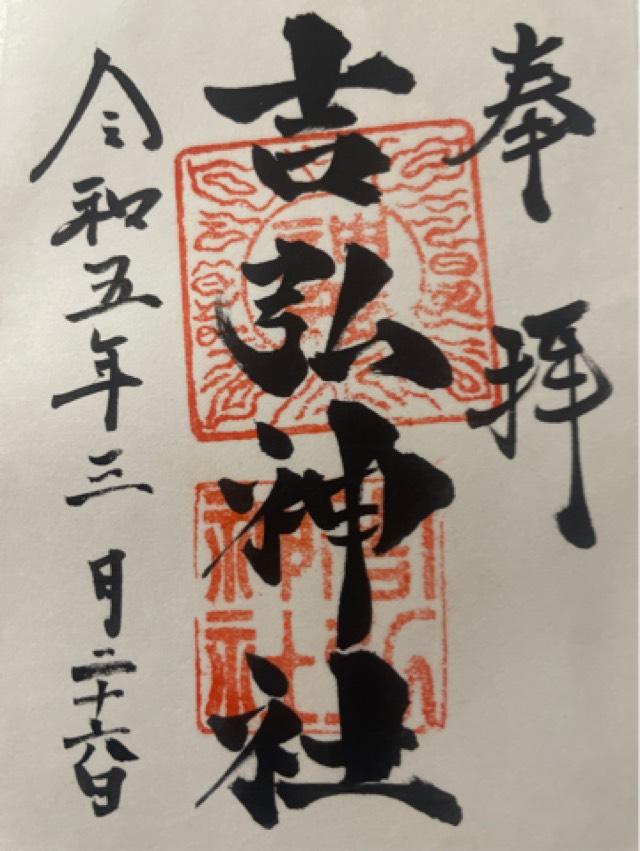 奉拝
吉弘神社
令和五年三月二十六日
吉弘
神社